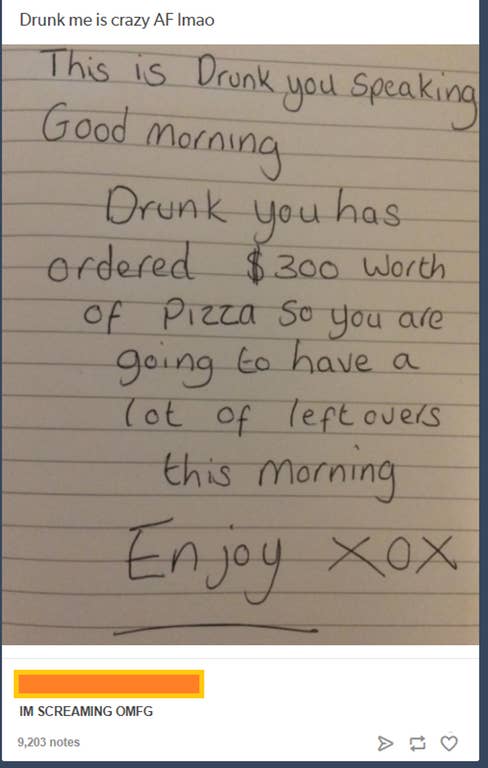 Drunk me is crazy AF lmao
This is Drunk you Speaking
Good morning
Drunk you has
ordered $300 worth
of Pizza So you are
going to have a
lot of leftovers
this morning
Enjoy XOX
IM SCREAMING OMFG
9,203 notes